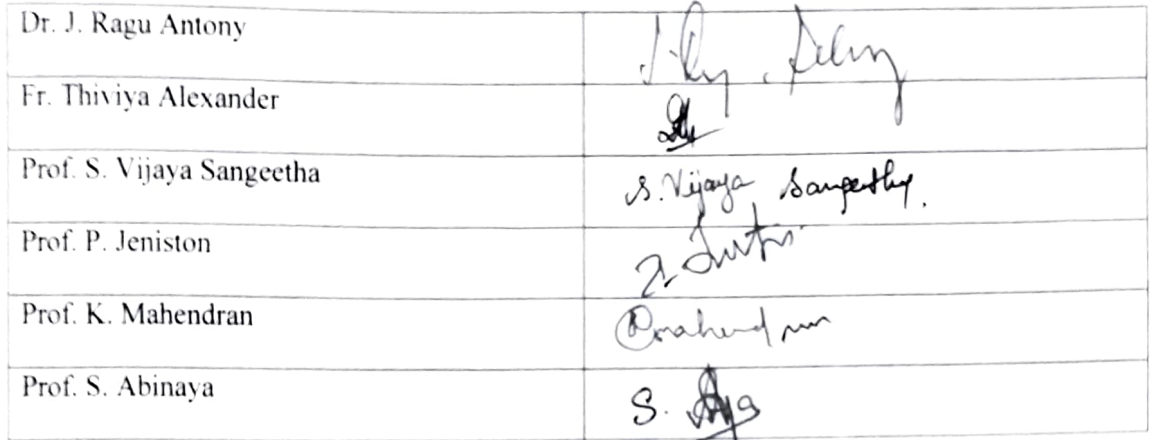 Dr. J. Ragu Antony
Fr. Thiviya Alexander
Prof. S. Vijaya Sangeetha S. Vijaya Sangeetha.
Prof. P. Jeniston
Prof. K. Mahendran mahendran
Prof. S. Abinaya S.